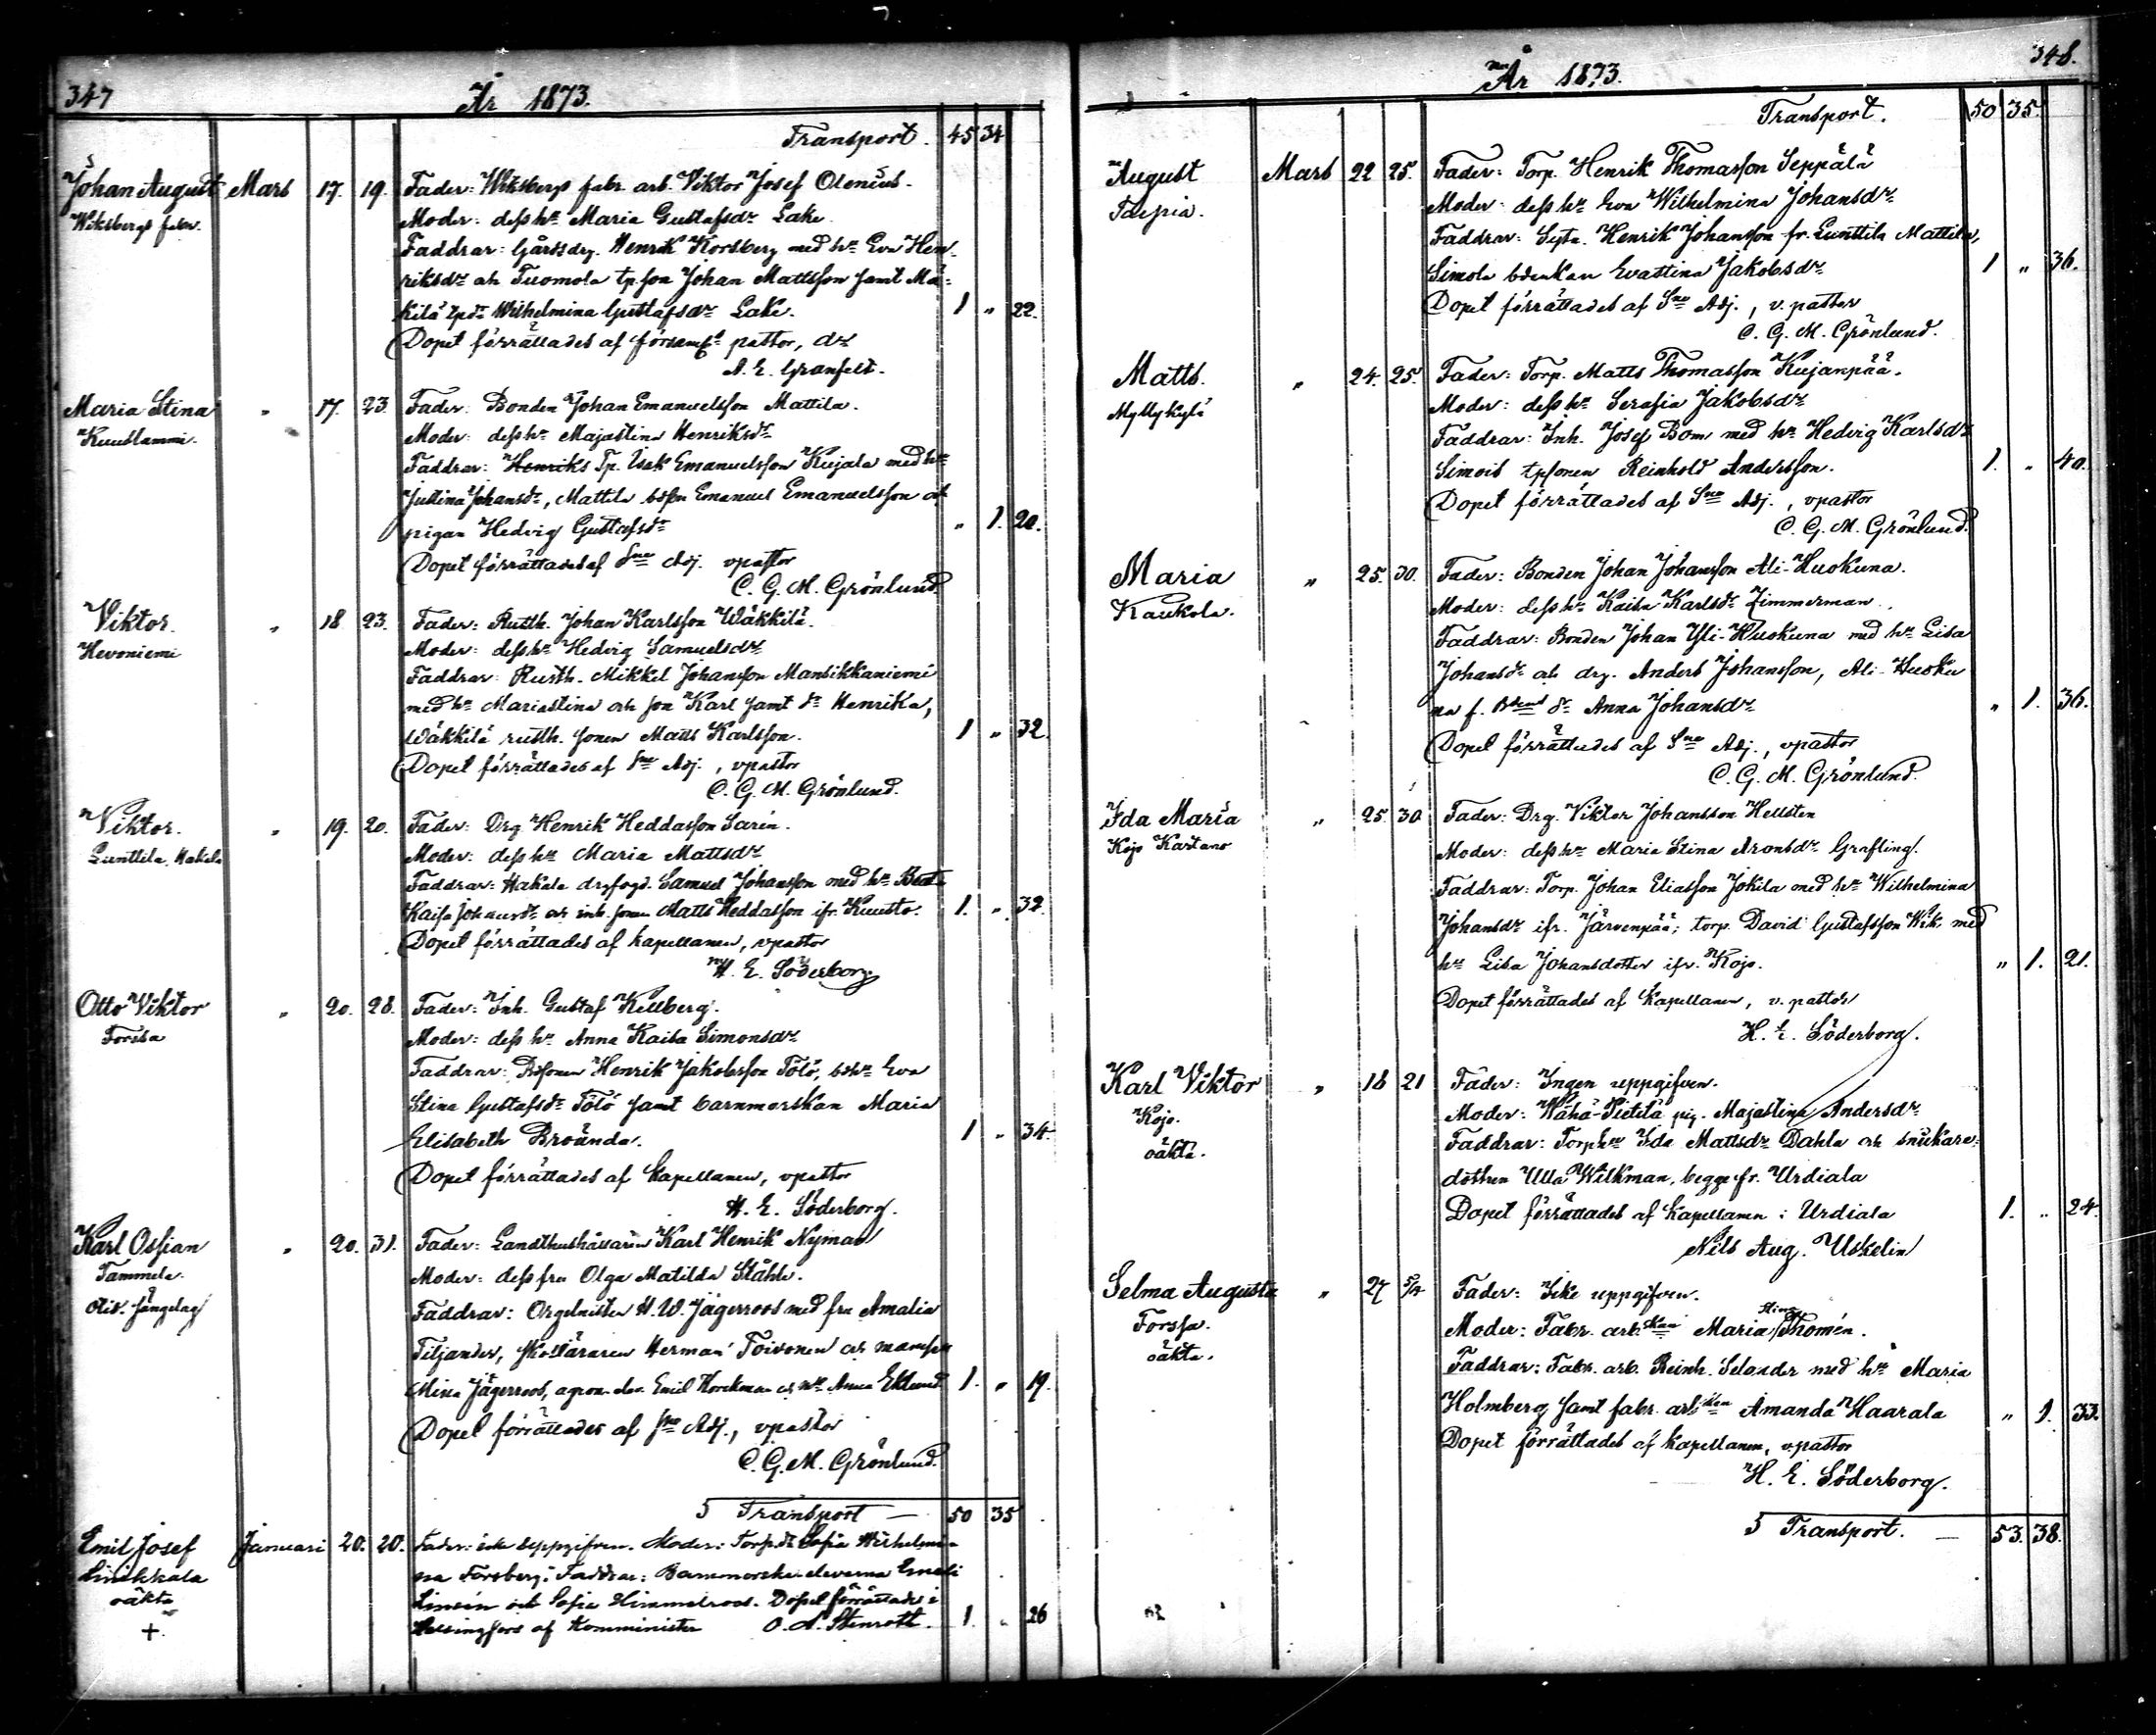 347
År 1873.
Transport. 45 34
Johan August Mars 17. 19. Fader: Wiksbergs fabr. arb. Viktor Josef Olenius.
Wiksbergs fabr. Moder: dess hu Maria Gustafsdr Lake.
Faddrar: Gårdsdrg. Henrik Korsberg med hu Eva Hen-
riksdr och Tuomola tp. son Johan Mattsson samt Mä-
kilä tpdr Wilhelmina Gustafsdr Lake. 1 „ 22.
Dopet förrättades af församls pastor, dr
A. E. Granfelt.
Maria Stina „ 17. 23. Fader: Bonden Johan Emanuelsson Mattila.
Kuuslammi. Moder: dess hu Majastina Henriksdr
Faddrar: Henriks Tp. Isak Emanuelsson Kujala med hu
Justina Johansdr, Mattila bdson Emanuel Emanuelsson och
pigan Hedvig Gustafsdr „ 1. 20.
Dopet förrättades af Sne Adj. vpastor
C. G. M. Grönlund.
Viktor. „ 18 23. Fader: Rusth. Johan Karlsson Wäkkilä.
Hevoniemi Moder: dess hu Hedvig Samuelsdr
Faddrar: Rusth. Mikkel Johansson Mansikkaniemi
med hu Mariastina och son Karl samt dr Henrika,
Wäkkilä rusth. sonen Matts Karlsson. 1 „ 32.
Dopet förrättades af Sne Adj., vpastor
C. G. M. Grönlund.
Viktor. „ 19. 20. Fader: Drg Henrik Heddasson Sarin.
Lunttila, Hakala Moder: dess hu Maria Mattsdr
Faddrar: Hakala drgfogd. Samuel Johansson med hu Beata
Kaisa Johansdr och inh. sonen Matts Heddasson ifr. Kuusto. 1. „ 32.
Dopet förrättades af kapellanen, vpastor
H. E. Söderborg
Otto Viktor „ 20. 28. Fader: Inh. Gustaf Kellberg.
Forssa Moder: dess hu Anna Kaisa Simonsdr
Faddrar: Bdsonen Henrik Jakobsson Tölö, bdhu Eva
Stina Gustafsdr Tölö samt barnmorskan Maria
Elisabeth Broända. 1 „ 34.
Dopet förrättades af kapellanen, vpastor
H. E. Söderborg.
Karl Ossian „ 20. 31. Fader: Landthushållaren Karl Henrik Nyman
Tammela. Moder: dess fru Olga Matilda Ståhle.
Faddrar: Orgelnisten H. W. Jägerroos med fru Amalia
Tiljander, skolläraren Herman Toivonen och mamsell
Mina Jägerroos, agron. elev. Emil Anna Eklund 1. „ 19.
Dopet förrättades af Sne Adj., vpastor
C. G. M. Grönlund.
5 Transport — 50 35
Emil Josef Januari 20. 20. Fader: icke uppgifven. Moder: Torp.dr Sofia Wilhelmi-
na Forsberg. Faddrar: Barnmorske eleverna Emeli
oäkta Linsén och Sofia Himmelroos. Dopet förrättades i
+ Helsingfors af Komminister O. A. Stenroth. 1. „ 26
348.
År 1873.
Transport. 50 35.
August Mars 22 25. Fader: Torp. Henrik Thomasson Seppälä
Taspia. Moder: dess hu Eva Wilhelmina Johansdr
Faddrar: Henrik Johansson fr. Lunttila Mattila,
Simola bdenkan Evastina Jakobsdr 1 „ 36.
Dopet förrättades af Sne Adj., v. pastor
C. G. M. Grönlund.
Matts. „ 24. 25. Fader: Torp. Matts Thomasson Kujanpää.
Myllykylä Moder: dess hu Serafia Jakobsdr
Faddrar: Inh. Josef Bom med hu Hedvig Karlsdr
Simois tpsonen Reinhold Andersson. 1. „ 40.
Dopet förrättades af Sne Adj., vpastor
C. G. M. Grönlund.
Maria „ 25. 30. Fader: Bonden Johan Johansson Ali-Huokuna.
Kaukola. Moder: dess hu Kaisa Karlsdr Zimmerman.
Faddrar: Bonden Johan Yli-Huokuna med hu Lisa
Johansdr och drg. Anders Johansson, Ali-Huoku
na f. Bdens dr Anna Johansdr „ 1. 36.
Dopet förrättades af Sne Adj., vpastor
C. G. M. Grönlund.
Ida Maria „ 25. 30 Fader: Drg. Viktor Johansson Hellsten
Kojo Kartano Moder: dess hu Maria Stina Aronsdr Grafling.
Faddrar: Torp. Johan Eliasson Jokila med hu Wilhelmina
Johansdr ifr. Järvenpää; torp. David Gustafsson Wik, med
hu Lisa Johansdotter ifr. Kojo. „ 1. 21.
Dopet förrättades af Kapellanen, v. pastor
H. E. Söderborg.
Karl Viktor „ 18 21 Fader: Ingen uppgifven.
Kojo. Moder: Wähä-Pietilä pig. Majastina Andersdr
oäkta. Faddrar: Torp.hu Ida Mattsdr Dahla och snickare-
dottren Ulla Wilkman, begge fr. Urdiala
Dopet förrättades af kapellanen i Urdiala 1. „ 24.
Nils Aug. Uskelin
Selma Augusta „ 27 5/4 Fader: Icke uppgifven.
Forssa. Moder: Fabr. arb.skan Maria Stina Thomén.
oäkta. Faddrar: Fabr. arb. Reinh. Selander med hu Maria
Holmberg samt fabr. arb.skan Amanda Haarala „ 1. 33.
Dopet förrättades af kapellanen, vpastor
H. E. Söderborg.
5 Transport. — 53. 38.